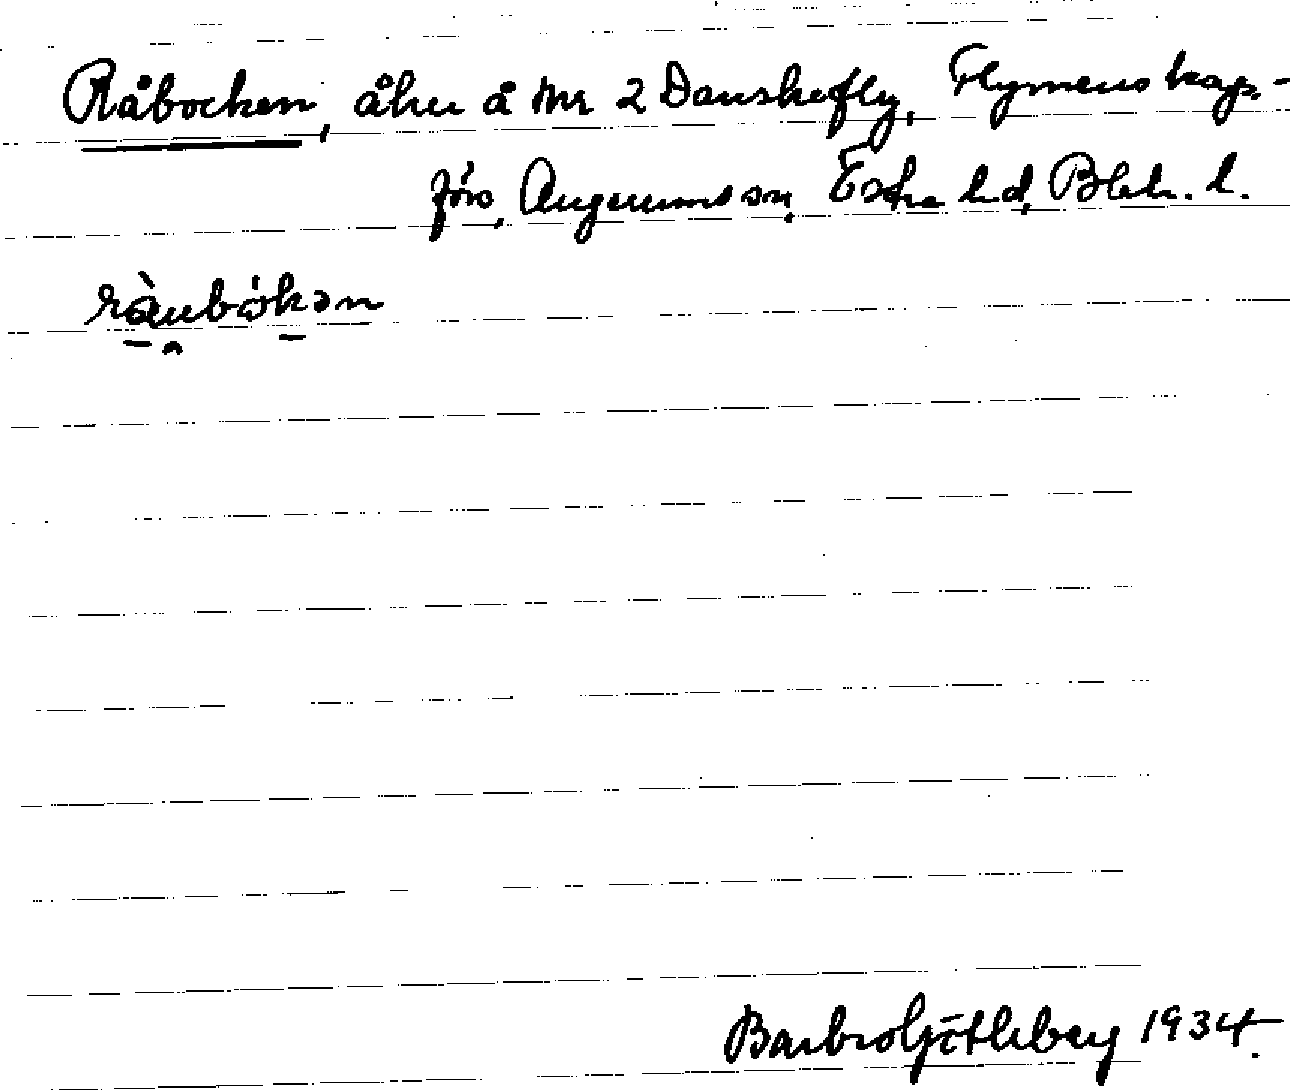 Råbocken, åker å Nr 2 Danskefly, Flymens kap.-
förs. Augerums sn. Östra hd, Blek. l.
ràu̯bókən
Barbro Götleberg 1934.